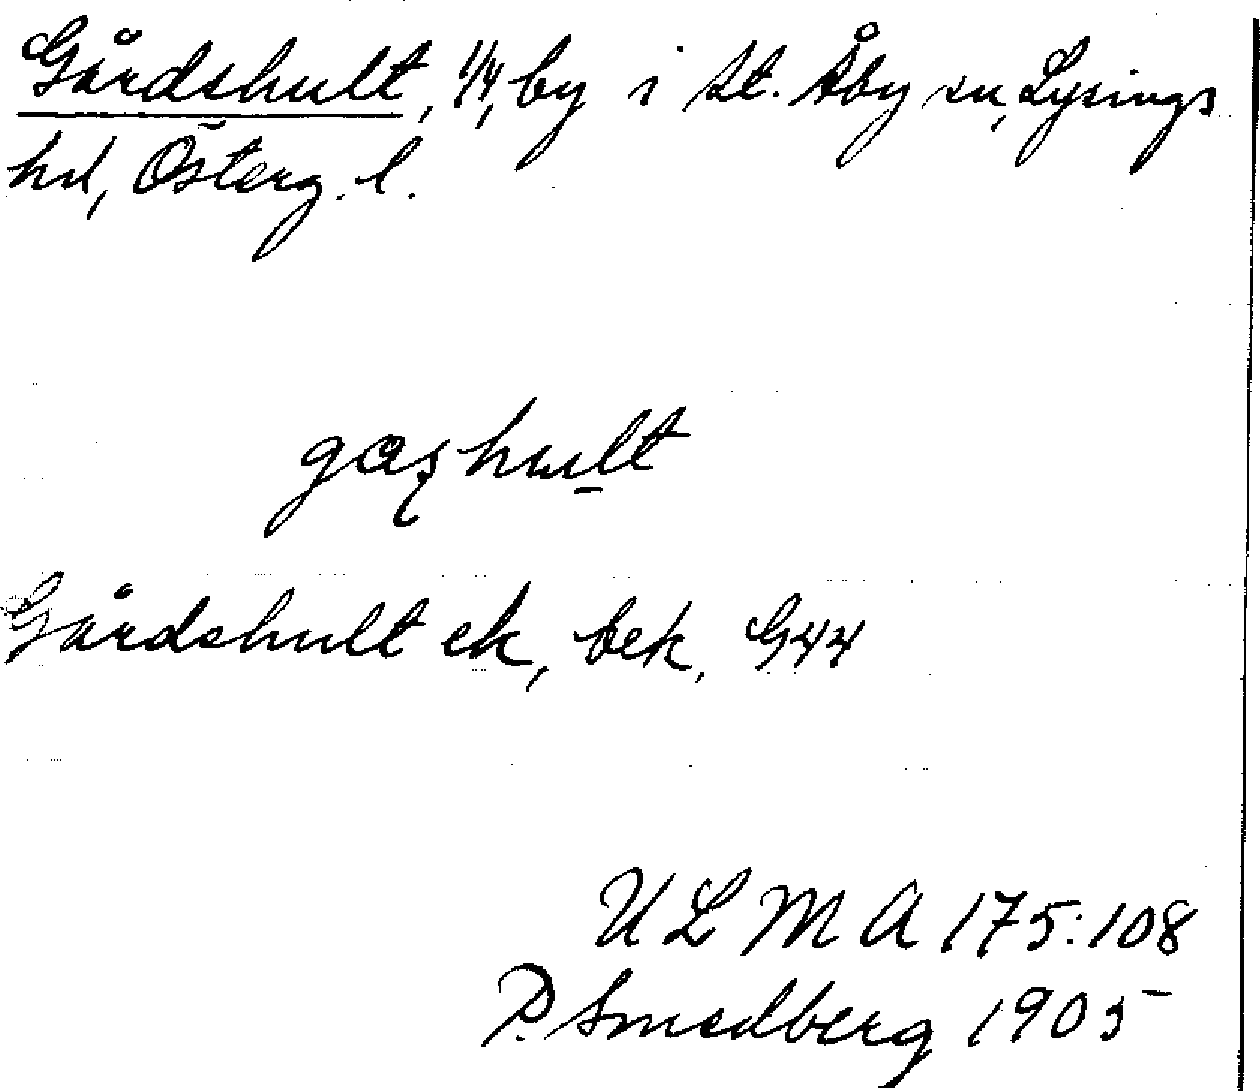 Gårdshult, 1/4, by i St. Åby sn, Lysings
hd, Österg. l.
gɑʂhult
Gårdshult ek, bek, G44
ULMA 175:108
P. Smedberg 1905